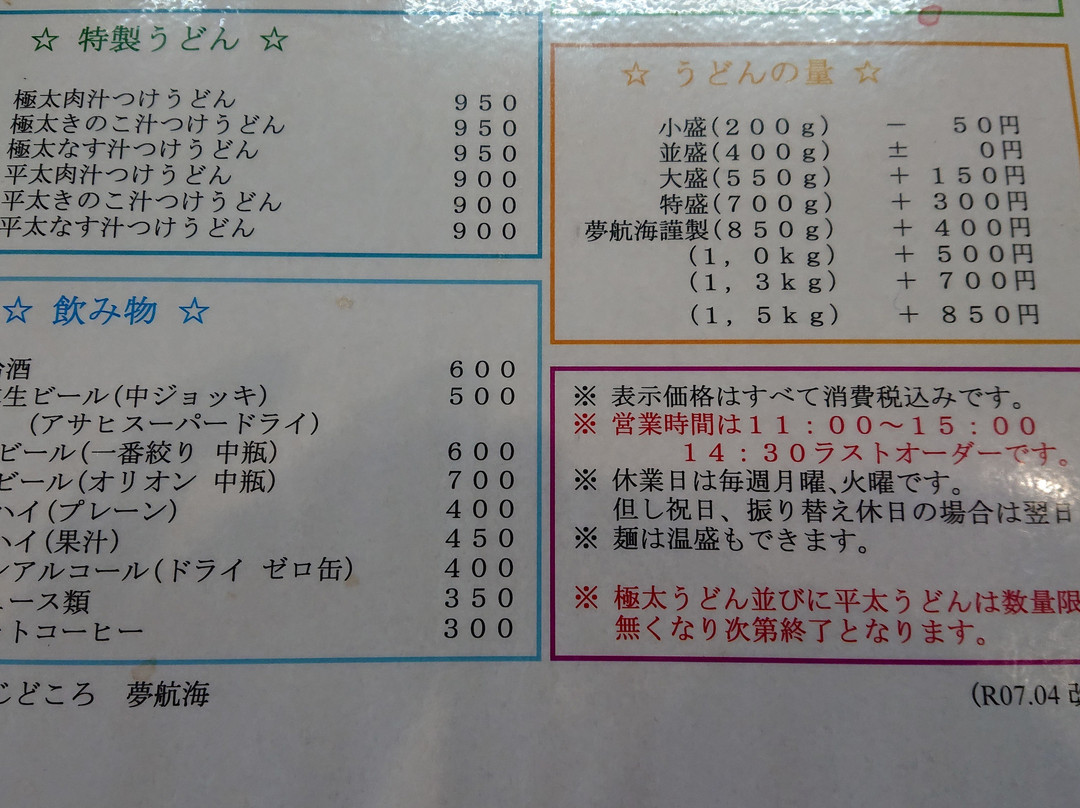 ☆ 特製うどん ☆
極太肉汁つけうどん ９５０
極太きのこ汁つけうどん ９５０
極太なす汁つけうどん ９５０
平太肉汁つけうどん ９００
平太きのこ汁つけうどん ９００
平太なす汁つけうどん ９００
☆ 飲み物 ☆
酒 ６００
生ビール(中ジョッキ) ５００
(アサヒスーパードライ)
ビール(一番絞り 中瓶) ６００
ビール(オリオン 中瓶) ７００
ハイ(プレーン) ４００
ハイ(果汁) ４５０
ンアルコール(ドライ ゼロ缶) ４００
ュース類 ３５０
ットコーヒー ３００
じどころ 夢航海
☆ うどんの量 ☆
小盛(２００ｇ) － ５０円
並盛(４００ｇ) ± ０円
大盛(５５０ｇ) ＋ １５０円
特盛(７００ｇ) ＋ ３００円
夢航海謹製(８５０ｇ) ＋ ４００円
(１，０ｋｇ) ＋ ５００円
(１，３ｋｇ) ＋ ７００円
(１，５ｋｇ) ＋ ８５０円
※ 表示価格はすべて消費税込みです。
※ 営業時間は１１：００～１５：００
１４：３０ラストオーダーです。
※ 休業日は毎週月曜、火曜です。
但し祝日、振り替え休日の場合は翌日
※ 麺は温盛もできます。
※ 極太うどん並びに平太うどんは数量限
無くなり次第終了となります。
(R07.04 改